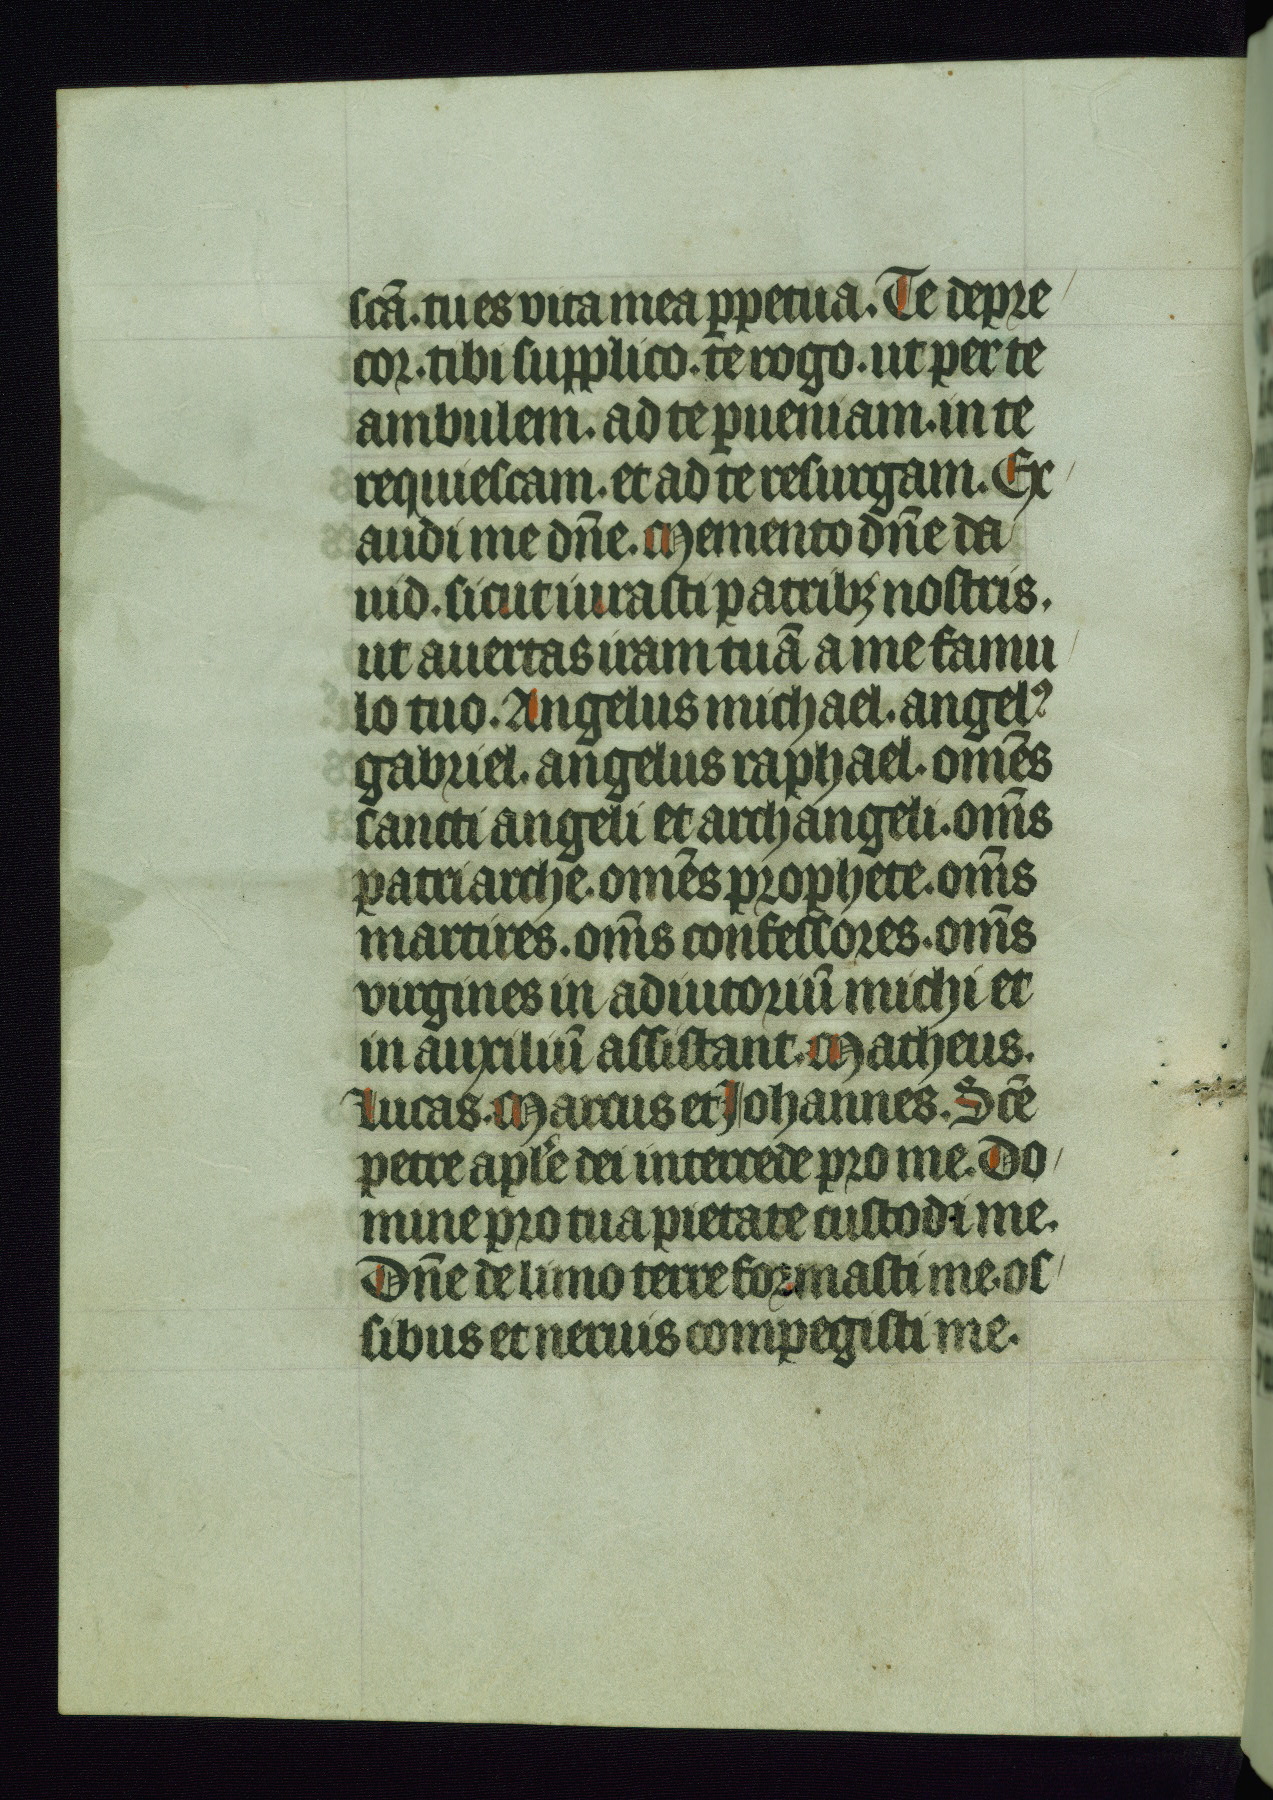 scā. tu es vita mea ꝑpetua. Te depre
cor. tibi supplico. te rogo. ut per te
ambulem. ad te ꝑueniam. in te
requiescam. et ad te resurgam. Ex
audi me dn̄e. Memento dn̄e da
uid. sicut iurasti patribꝫ nostris.
ut auertas iram tuā a me famu
lo tuo. Angelus michael. angelꝰ
gabriel. angelus raphael. omēs
sancti angeli et archangeli. om̄s
patriarche. omēs prophete. om̄s
martires. om̄s confessores. om̄s
virgines in adiutoriū michi et
in auxiliū assistant. Matheus.
Lucas. Marcus et Johannes. Scē
petre apl̄e dei intercede pro me. Do
mine pro tua pietate custodi me.
Dn̄e de limo terre formasti me. os
sibus et neruis compegisti me.